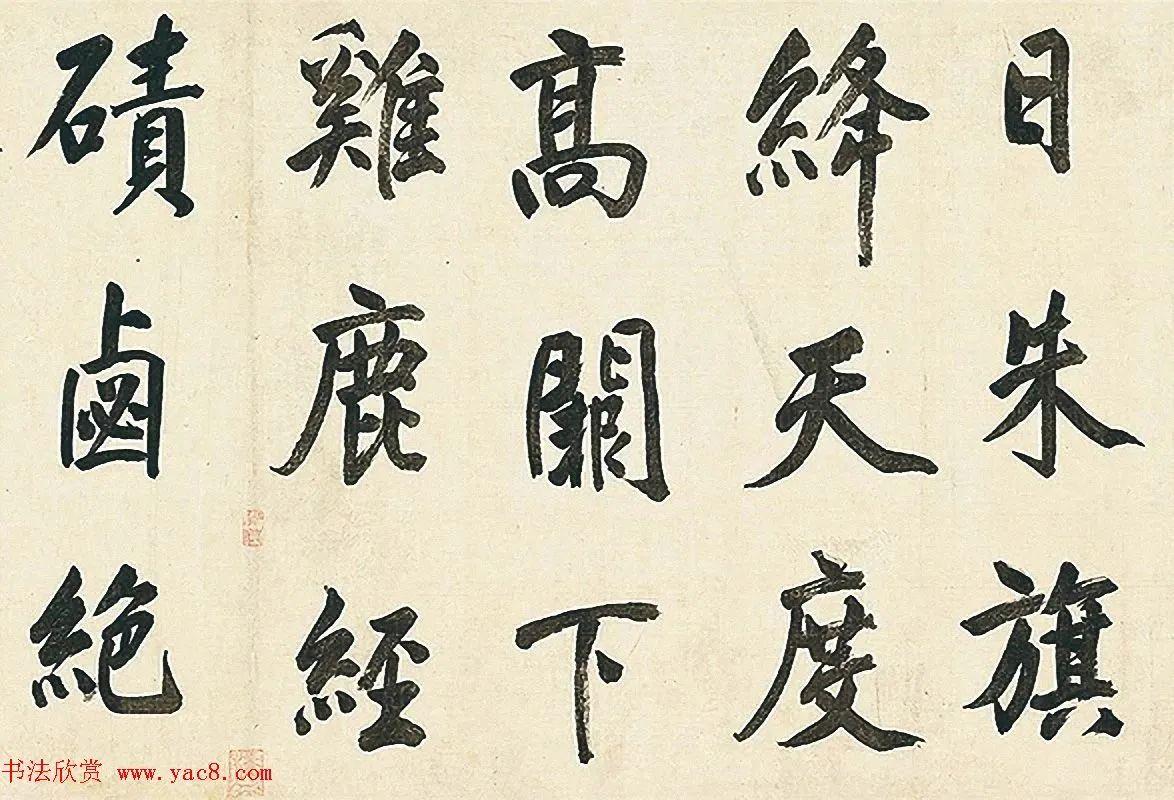 日朱旗
絳天度
髙闕下
雞鹿經
磧鹵絶
书法欣赏 www.yac8.com